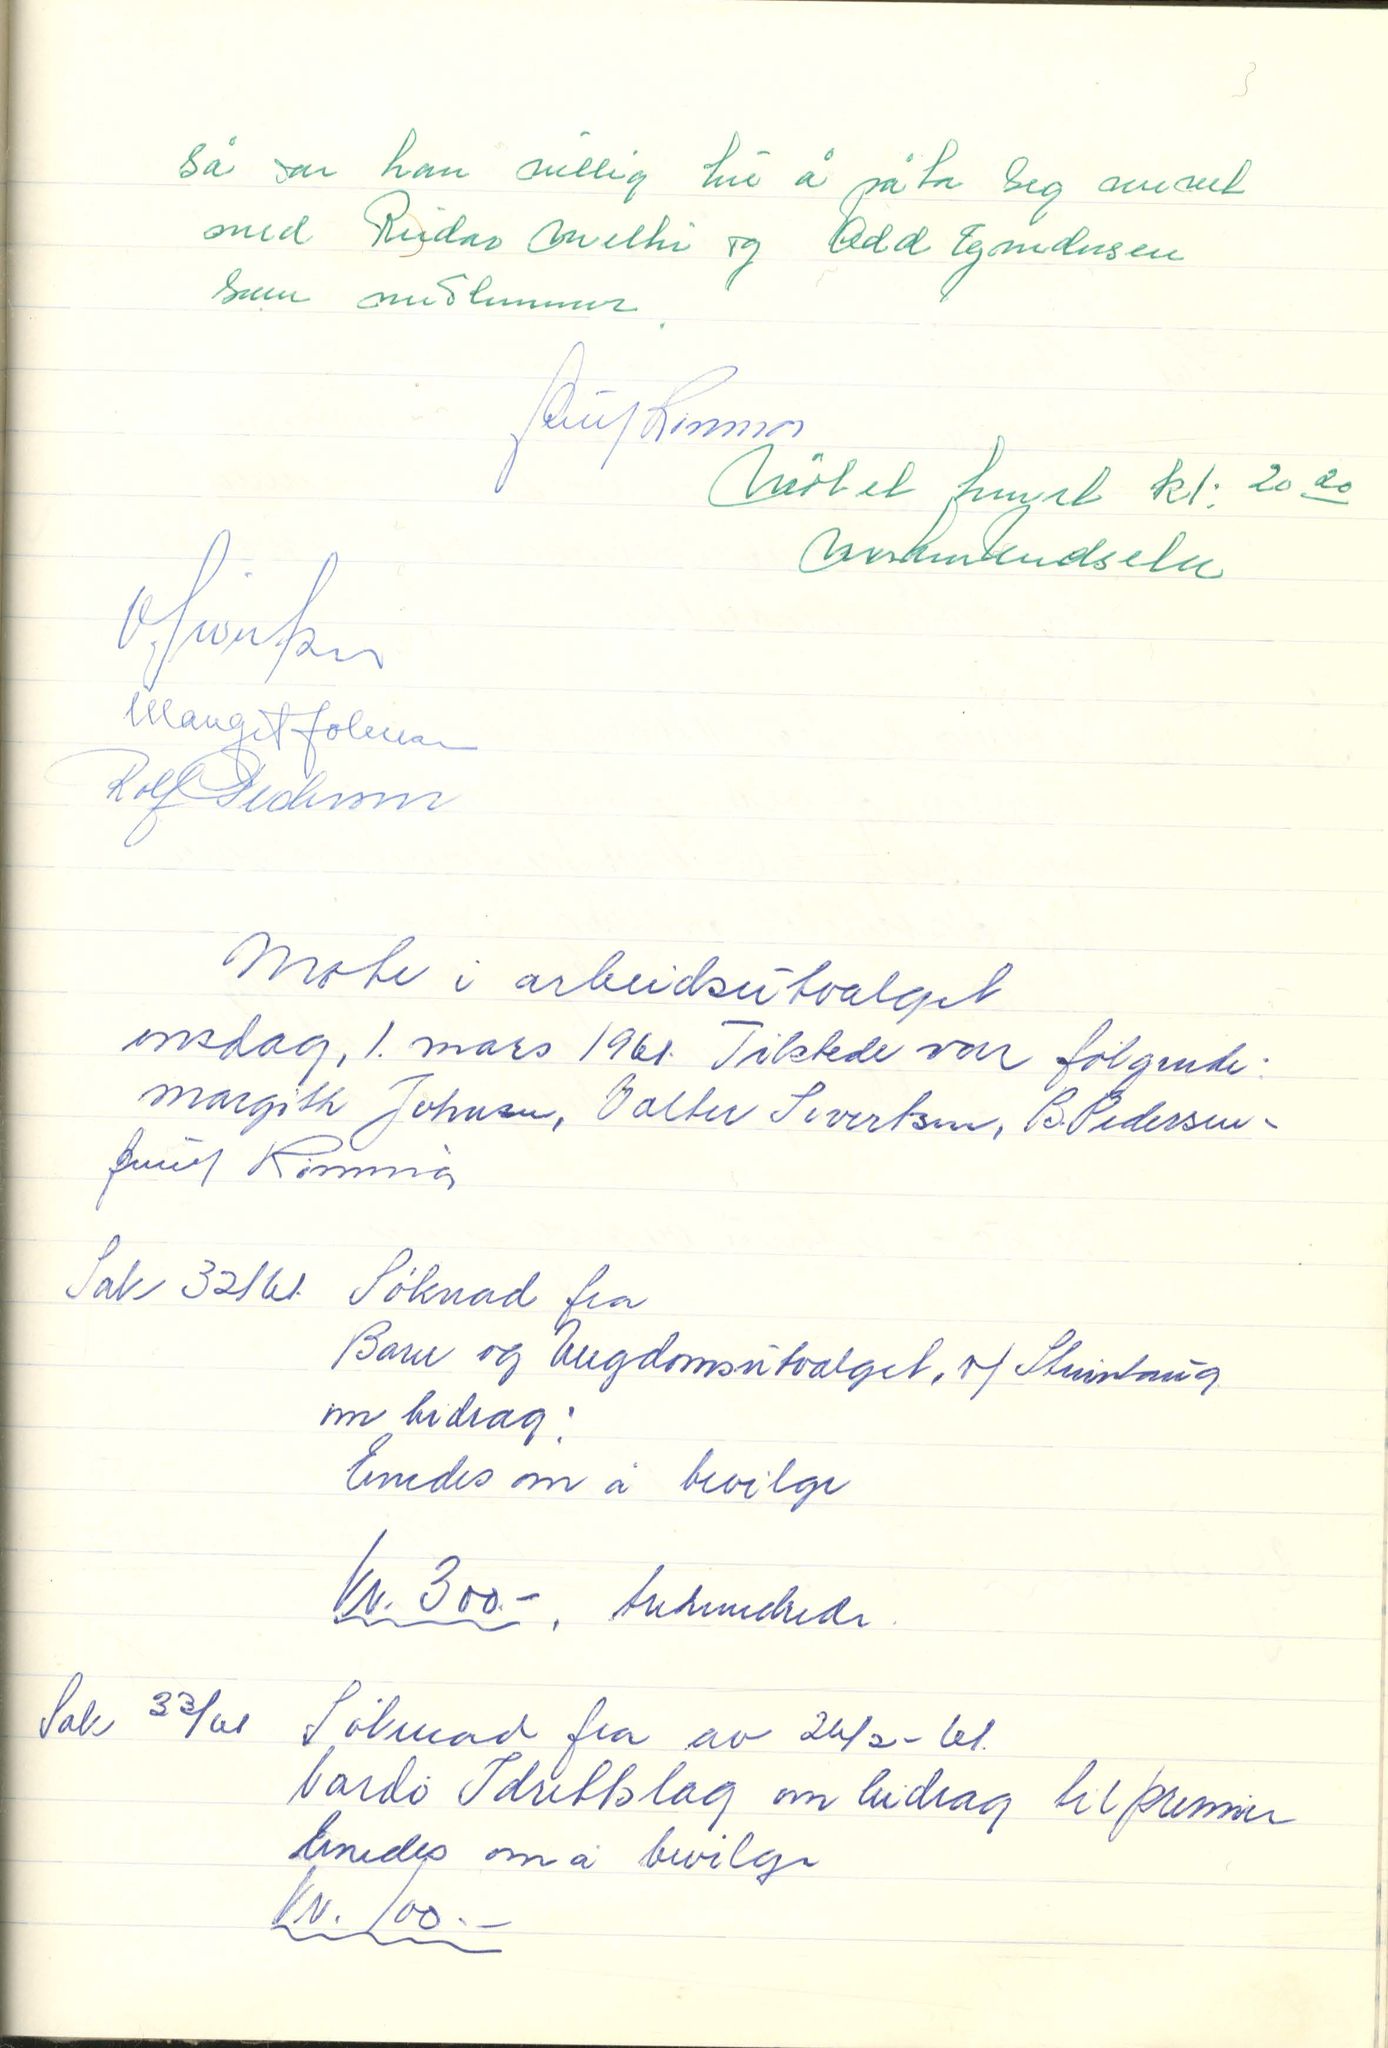 3
så var han villig til å påta seg vervet
med Reidar Methi og Odd Egmdusen
som medlemmer.
Möbet hevet kl: 20 20
Møte i arbeidsutvalget
onsdag, 1. mars 1961. Tilstede var følgende:
Margith Johnsen, Valter Sivertsen, B. Pedersen -
Rimmia
Sak 32/61. Söknad fra
Barne og Ungdomsutvalget, v/ Steinhaug
om bidrag:
Enedes om å bevilge
Kr. 300.-, trehundrede.
Sak 33/61 Söknad fra av 24/2-61.
Vardö Idrettslag om bidrag til premier
Enedes om å bevilge
Kr. 100.-
Margit Johnsen
Rolf Pedersen